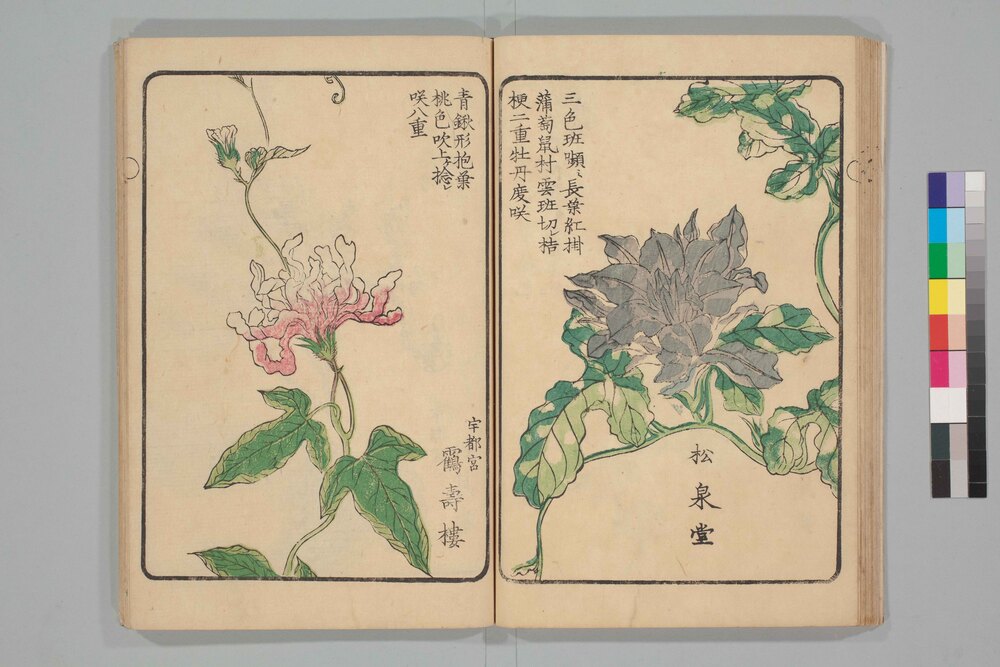 三色斑嚬〻長葉紅掛
蒲萄鼠村雲斑切レ桔
梗二重牡丹度咲
松泉堂
青鍬形抱葉
桃色吹上ケ捻レ
咲八重
宇都宮
鶴壽樓